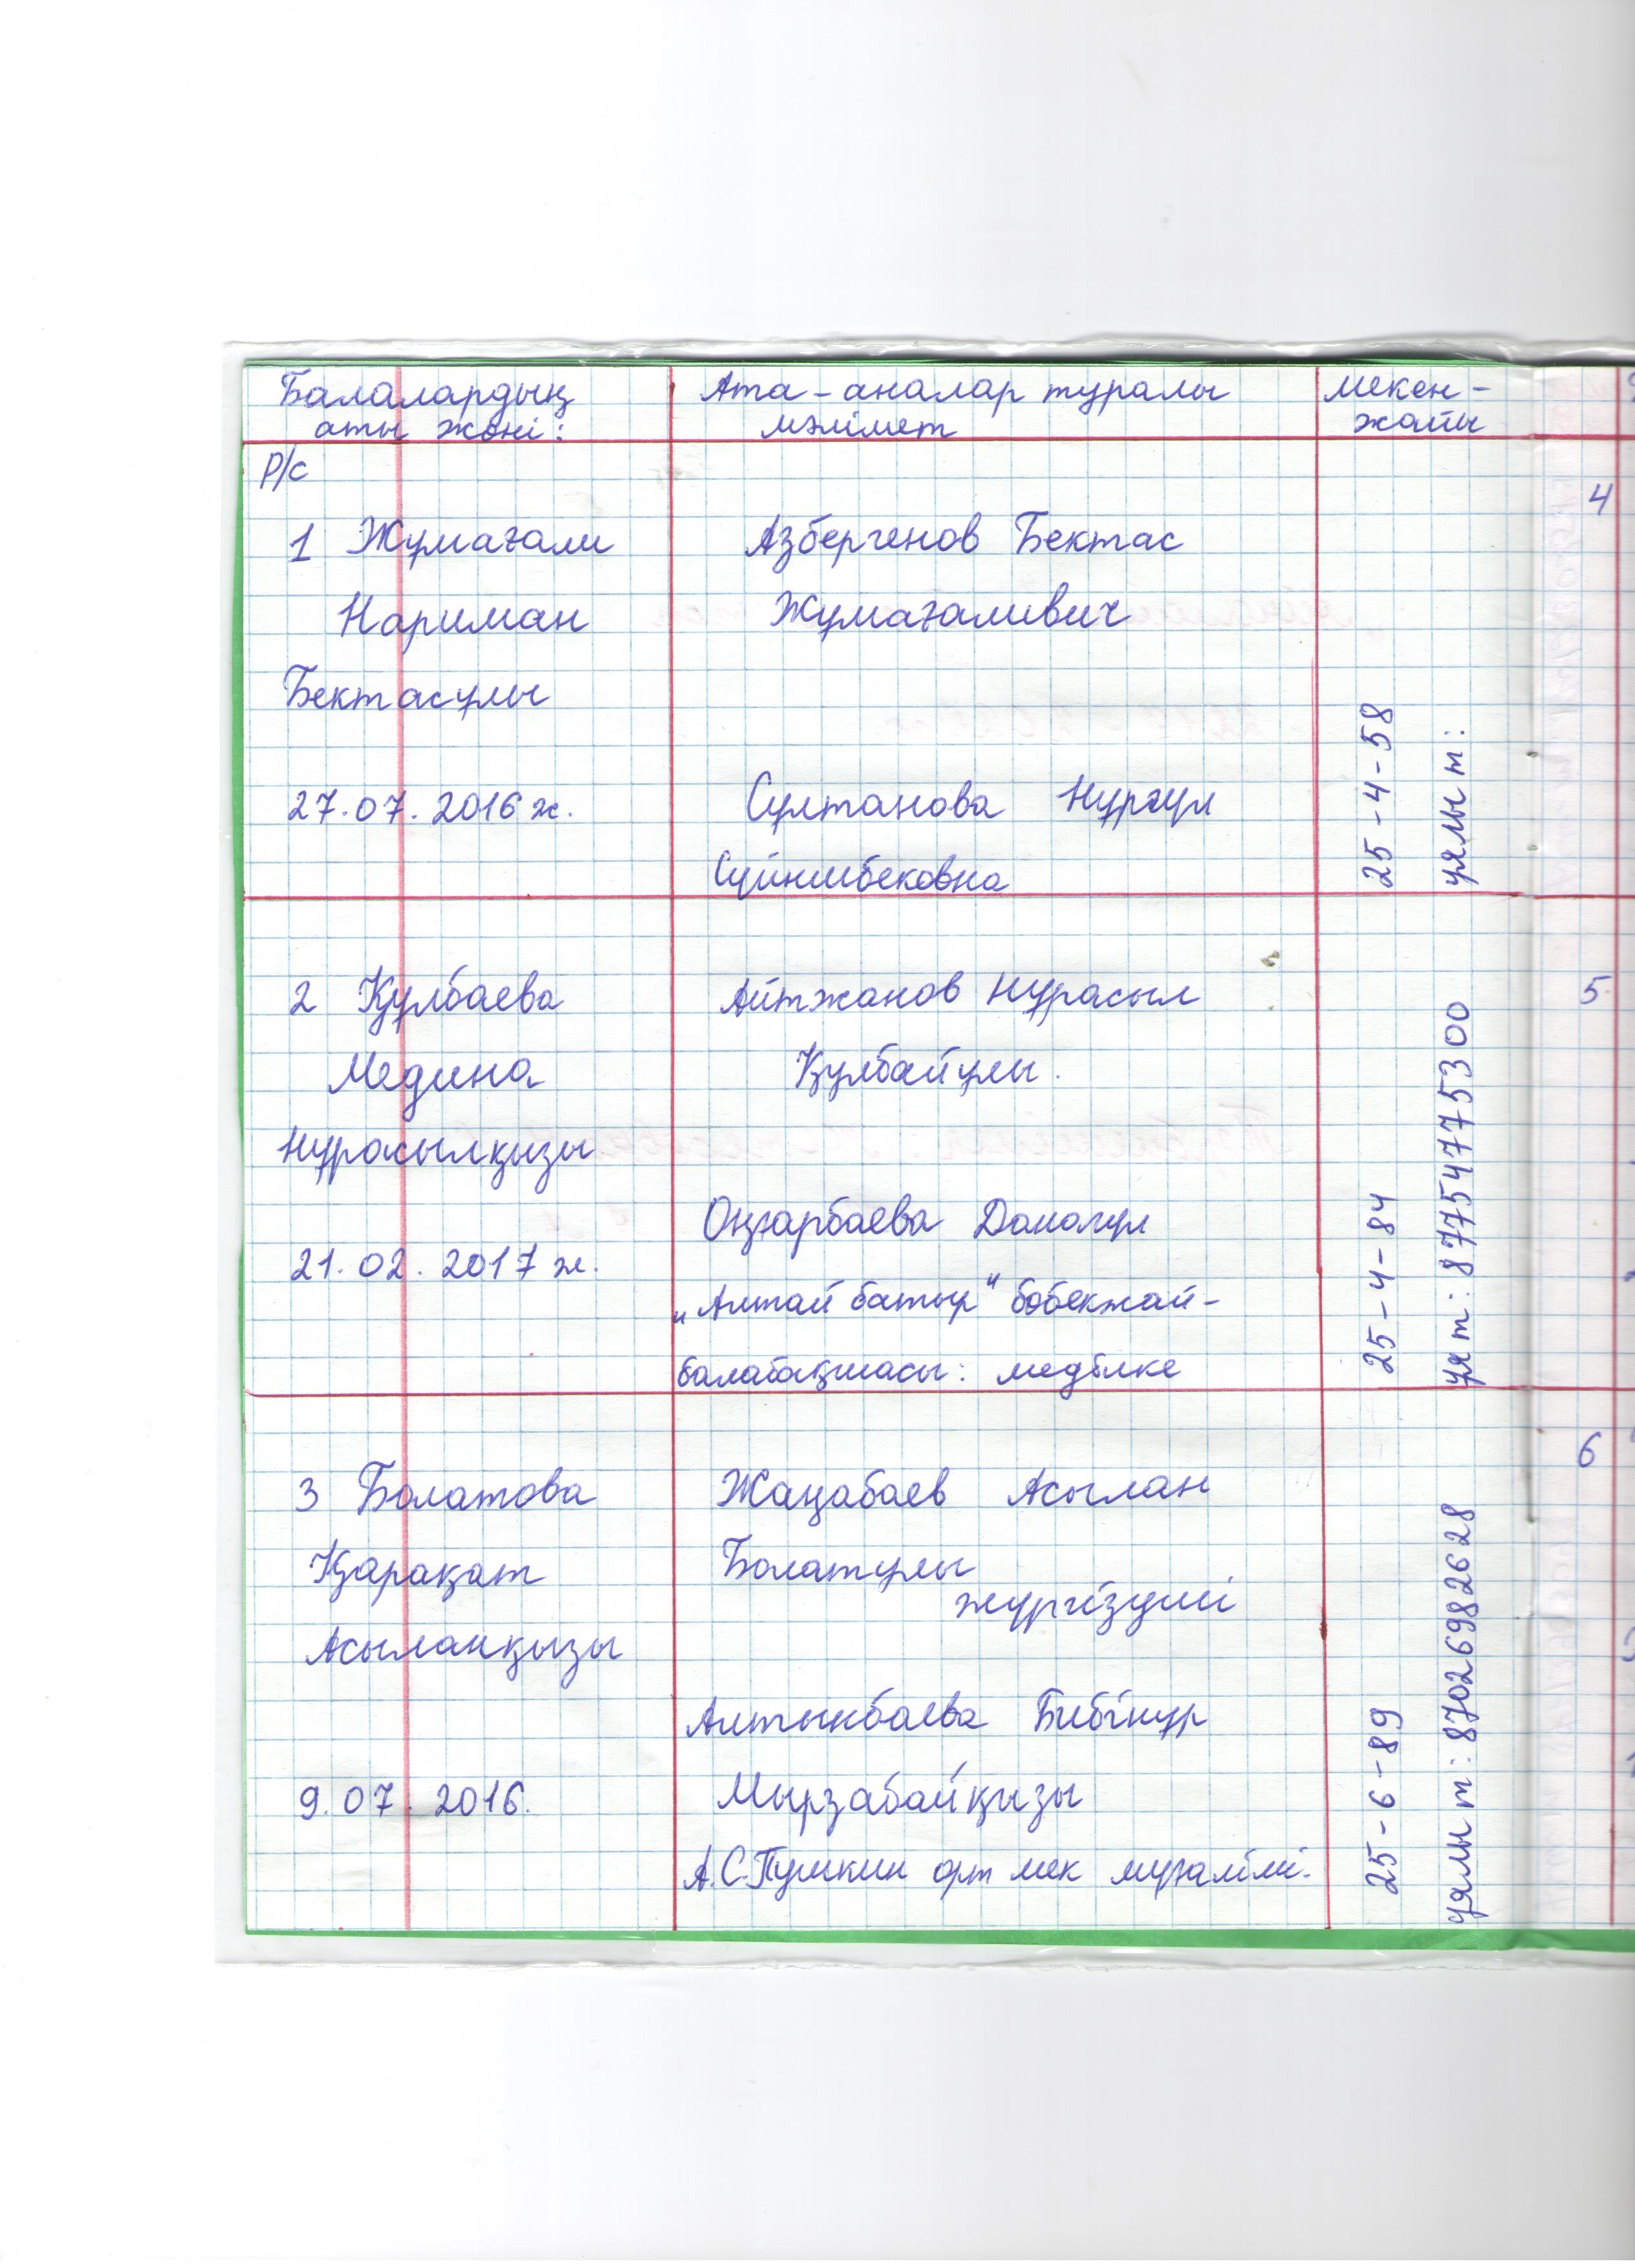 Балалардың
аты жөні:
Ата-аналар туралы
мәлімет
мекен-
жайы
р/с
1 Жұмағали
Нариман
Бектасұлы
27.07.2016 ж.
Азбергенов Бектас
Жұмағаливич
Султанова Нұргүл
Сүйншбековна
25-4-58
ұялы т:
2 Құлбаева
Медина
Нұрасылқызы
21.02.2017 ж.
Айтжанов Нұрасыл
Құлбайұлы.
Оңғарбаева Данагүл
„Алтай батыр" бөбекжай-
балабақшасы: медбике
25-4-84
ұят: 87754775300
3 Болатова
Қарақат
Асыланқызы
9.07.2016.
Жаңабаев Асылан
Болатұлы
жүргізуші
Алтынбаева Бибінұр
Мырзабайқызы
А.С.Пушкин орт мек мұғалімі.
25-6-89
ұялы т: 87026982628
4
5
6